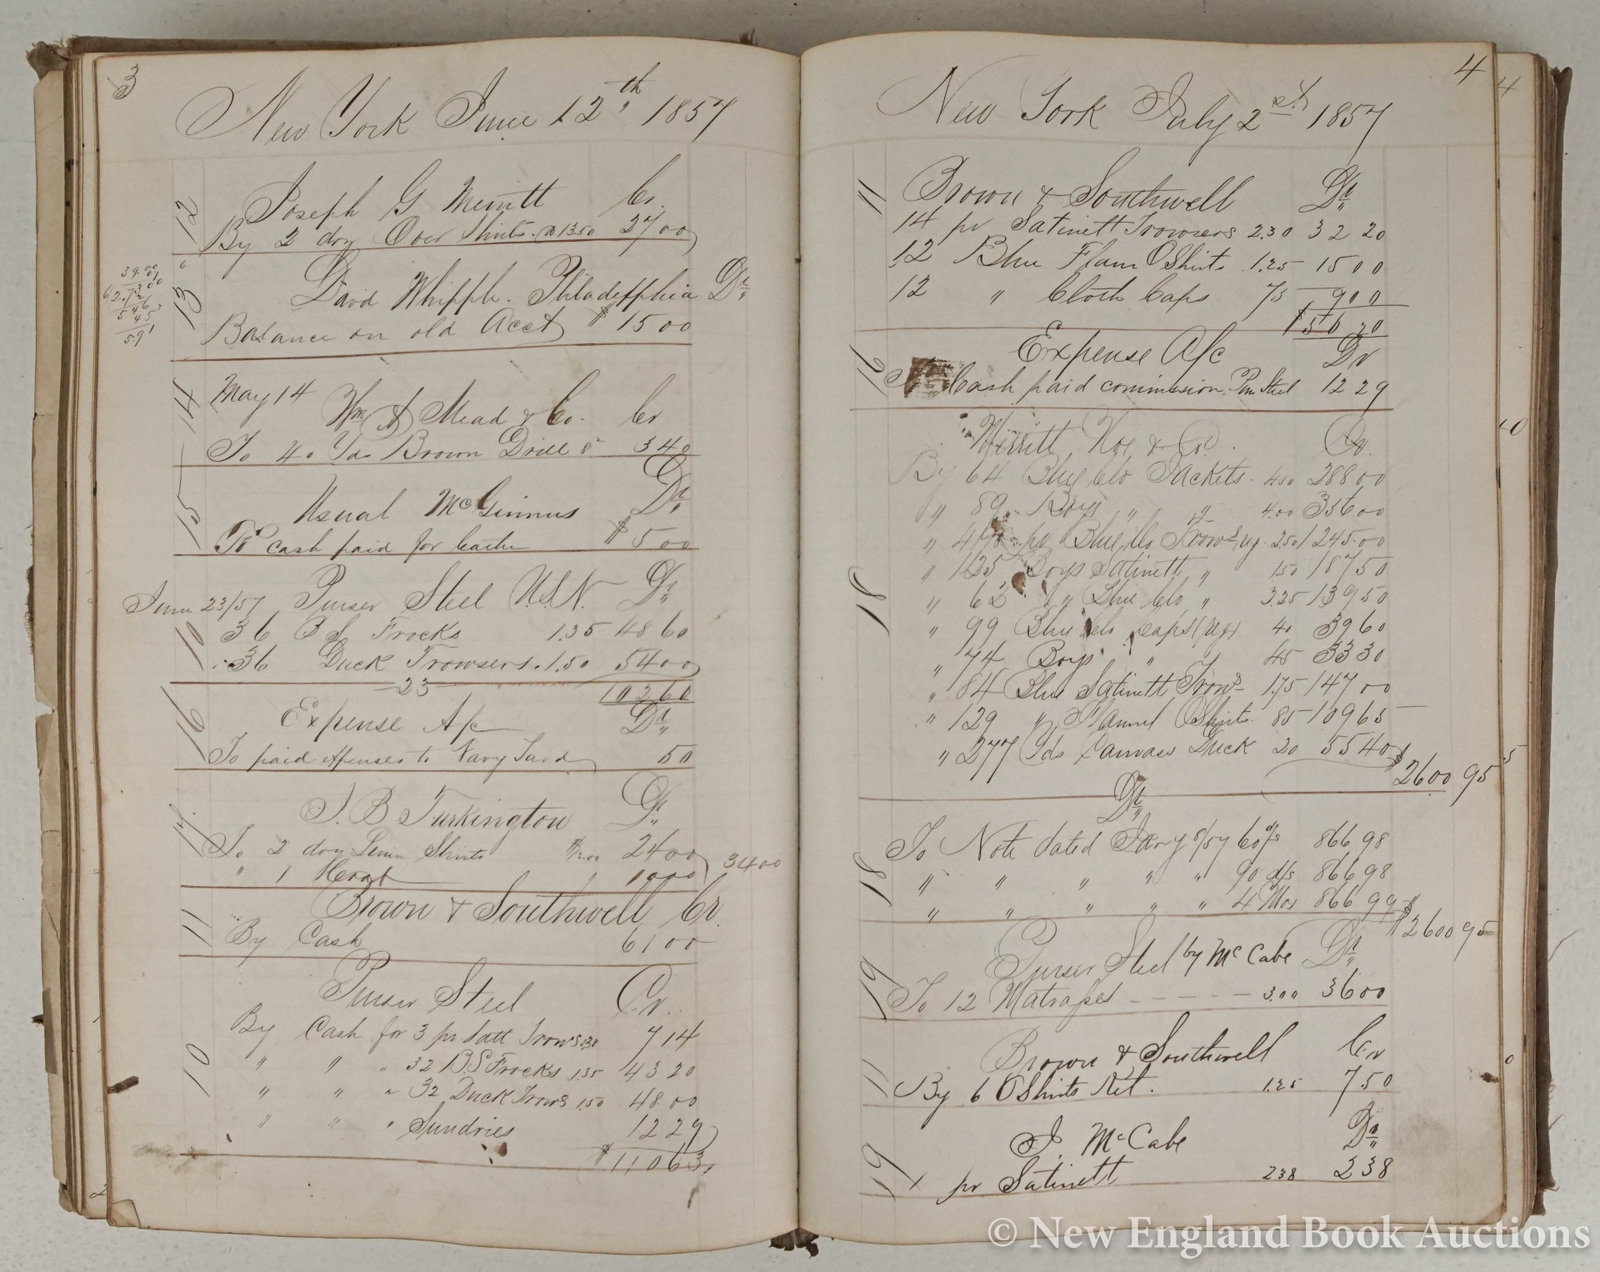 3
New York June 12th 1857
12 Joseph G Merritt Cr.
By 2 doz Over Shirts. a 13.50 27 00
13 David Whipple. Philadelphia Dr
Balance on old Acct $ 15 00
14 May 14 Wm A Mead & Co. Cr
To 40 Yds Brown Drill 8 3 40
15 Usual McGinnus Dr
To cash paid for $ 5 00
June 23/57 Purser Steel U.S.N. Dr
10 36 B S Frocks 1.35 48 60
36 Duck Trowsers. 1.50 54 00
23 102 60
16 Expense A/c Dr
To paid expenses to Navy Yard 50
17 J. B Turkington Dr
To 2 doz Shirts 24 00
" 1 10 00 34 00
11 Brown & Southwell Cr.
By Cash 61 00
Purser Steel Cr.
10 By Cash for 3 pr Satt Trows 2.38 7 14
" " " 32 B.S Frocks 1.35 43 20
" " " 32 Duck Trows 1.50 48 00
" " " Sundries 12 29
$ 110 63
4
New York July 2nd 1857
11 Brown & Southwell Dr
14 pr Satinett Trowsers 2.30 32 20
12 Blue Flann O Shirts 1.25 15 00
12 " Cloth Caps 75 9 00
$ 56 20
16 Expense A/c Dr
To Cash paid commission Pur Steel 12 29
18 Merritt, & Co. Cr.
By 64 Blue Clo Jackets. 4.50 288 00
" 89 Boys " " 4.00 356 00
" 498 pr Blue Clo Trows 2.50 1245.00
" 125 Boys Satinett " 1.50 187 50
" 62 " Blue Clo " 2.25 139 50
" 99 Blue Clo Caps 40 39 60
" 74 Boys " 45 33 30
" 84 Blue Satinett Trows 1.75 147 00
" 129 " Flannel O Shirts 85 109 65
" 277 Yds Canvass Duck 20 55 40 $2600 95
Dr
18 To Note dated Jany 8/57 60 d/s 866 98
" " " " " 90 d/s 866 98
" " " " " 4 Mos 866 99 $2600 95
19 Purser Steel by McCabe Dr
To 12 Matrasses 3.00 36 00
Brown & Southwell Cr
11 By 6 O Shirts Ret. 1.25 7 50
J. McCabe Dr
19 1 pr Satinett 2.38 2 38
© New England Book Auctions